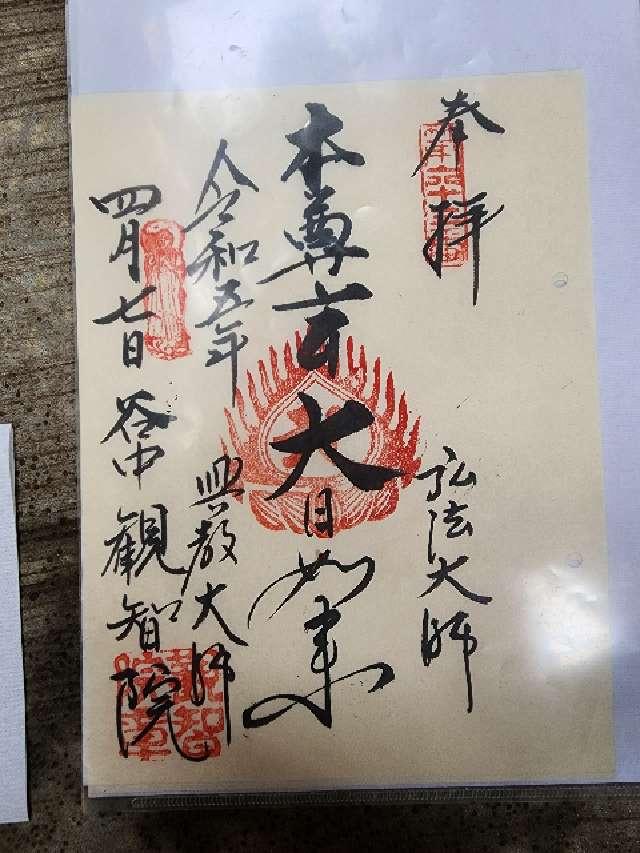 奉拝
弘法大師
本尊
大日如来
令和五年
興教大師
四月七日
谷中観智院